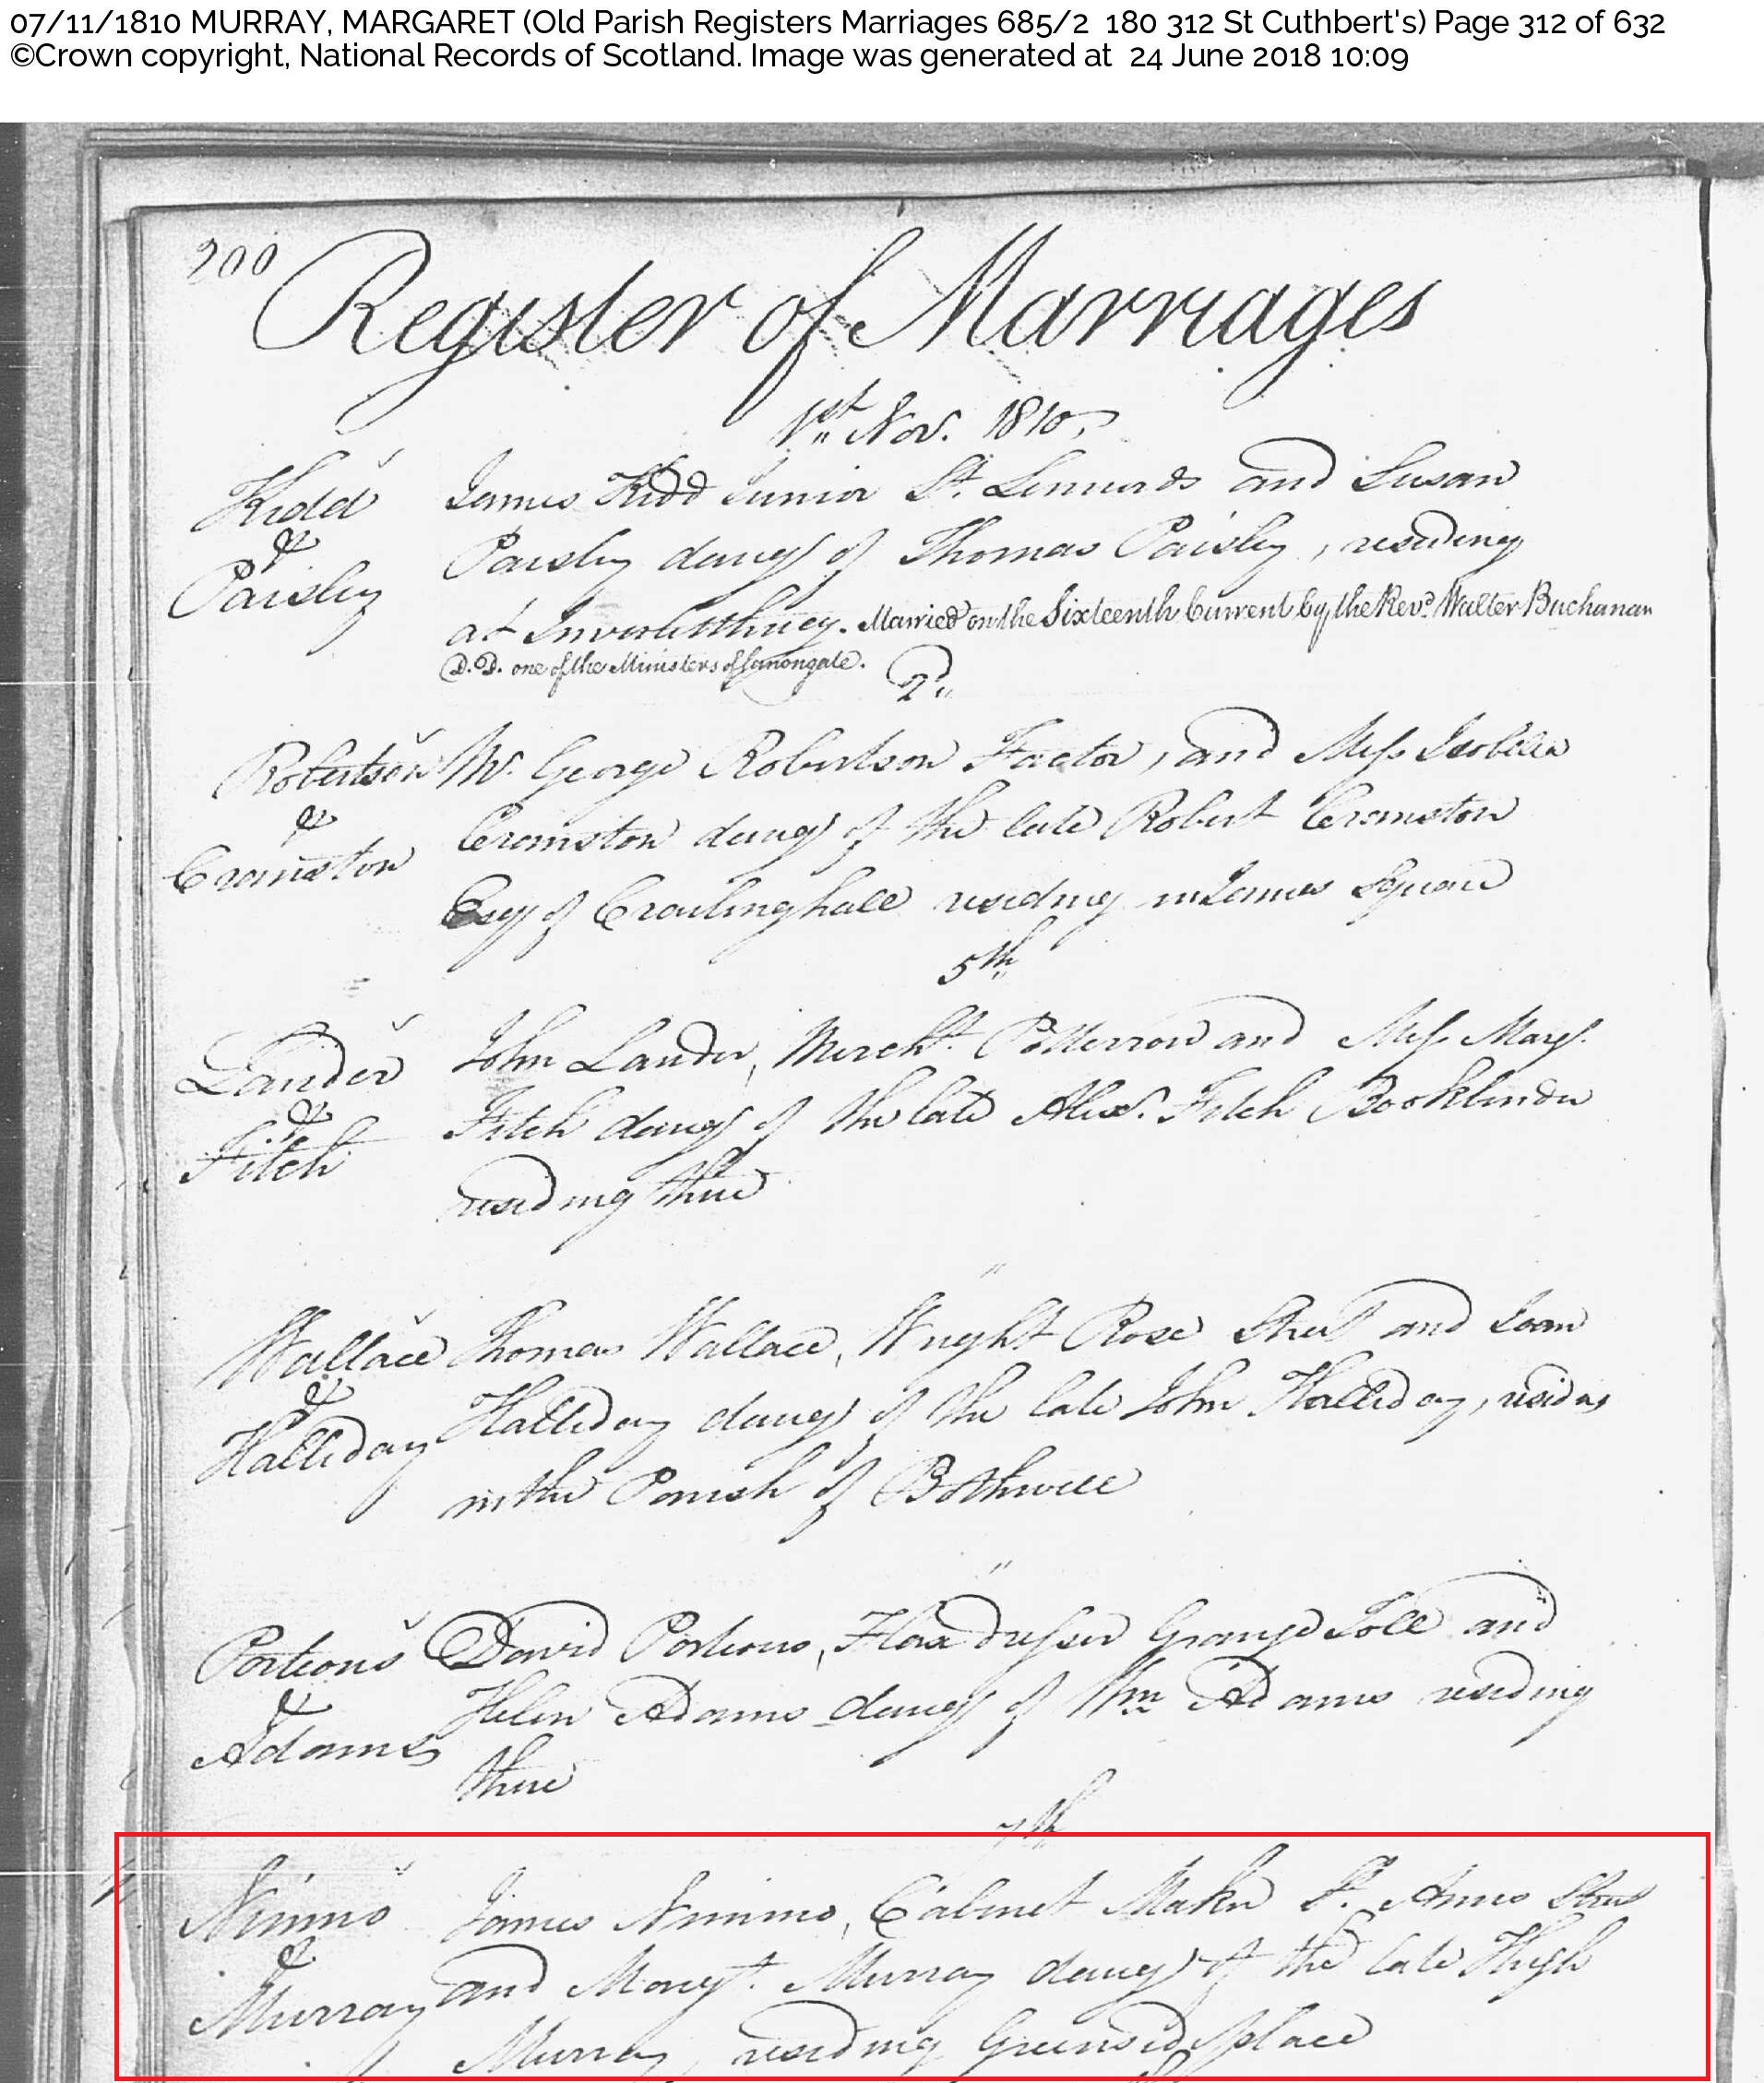 07/11/1810 MURRAY, MARGARET (Old Parish Registers Marriages 685/2 180 312 St Cuthbert's) Page 312 of 632
©Crown copyright, National Records of Scotland. Image was generated at 24 June 2018 10:09
200
Register of Marriages
1st Nov. 1810,
Kidd
&
Paisley
James Kidd Junior St. Lennards and Susan
Paisley daugr of Thomas Paisley, residing
at Inverleithney. Married on the Sixteenth Current by the Revd. Walter Buchanan
D.D. one of the Ministers of Canongate.
2d
Robertson
&
Cranston
Mr. George Robertson Factor, and Miss Isobella
Cranston daugr of the late Robert Cranston
Esqr of Crailinghall residing in James Square
5th
Lauder
&
Fitch
John Lauder, Mercht. Potterrow and Miss Margt.
Fitch daugr of the late Alexr. Fitch Bookbinder
residing there
"
Wallace
&
Halliday
Thomas Wallace, Wright Rose Street and Joan
Halliday daugr of the late John Halliday, residing
in the Parish of Bothwell
"
Porteous
&
Adams
David Porteous, Flaxdresser Grange Toll and
Helen Adams daugr of Wm Adams residing
there
7th
Nimmo
&
Murray
James Nimmo, Cabinet Maker St. Anns Street
and Margt. Murray daugr of the late Hugh
Murray, residing Greenside place